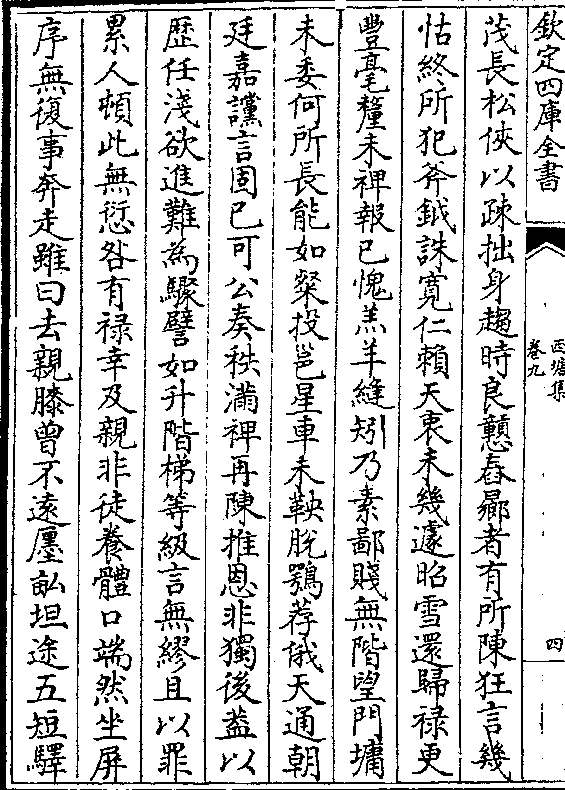 欽定四庫全書
西塘集
卷九
四
茂長松俠以疎拙身趨時良戇舂曏者有所陳狂言幾
怙終所犯斧鉞誅寛仁賴天衷未幾遽昭雪還歸禄更
豐毫釐未禆報已愧羔羊縫矧乃素鄙賤無階望門墉
未委何所長能如粲投邕星車未鞅脫鶚荐俄天通朝
廷嘉讜言固已可公奏秩滿禆再陳推恩非獨後葢以
歴任淺欲進難為驟譬如升階梯等級言無繆且以罪
累人頓此無愆咎有禄幸及親非徒養體口端然坐屏
序無復事奔走雖曰去親膝曾不遠廛畝坦途五短驛